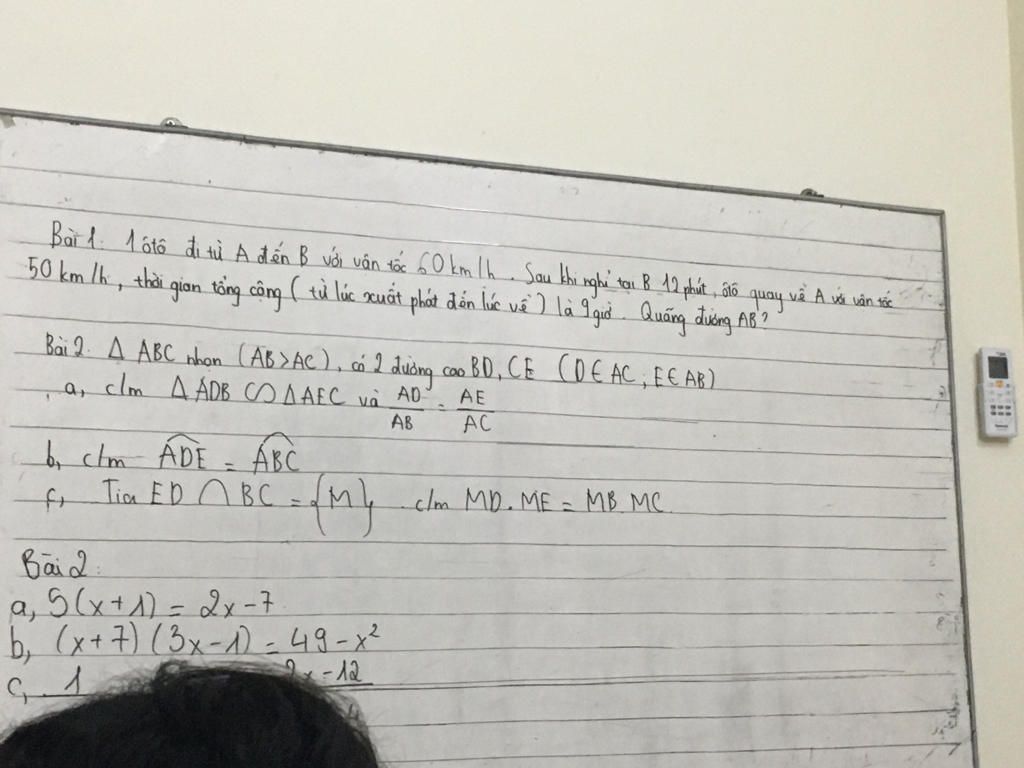 Bài 1. 1 ôtô đi từ A đến B với vân tốc 60km/h. Sau khi nghỉ tại B 12 phút, ôtô quay về A với vân tốc
50 km/h, thời gian tổng cộng (từ lúc xuất phát đến lúc về) là 9 giờ. Quãng đường AB?
Bài 2. Δ ABC nhọn (AB>AC), có 2 đường cao BD, CE (D∈AC; E∈AB)
a, c/m Δ ADB ∽ Δ AEC và AD/AB = AE/AC
b, c/m ADE = ABC
c, Tia ED ∩ BC = {M}, c/m MD.ME = MB.MC.
Bài 2:
a, 5(x+1) = 2x-7
b, (x+7)(3x-1) = 49-x²
c, 1 2x-12